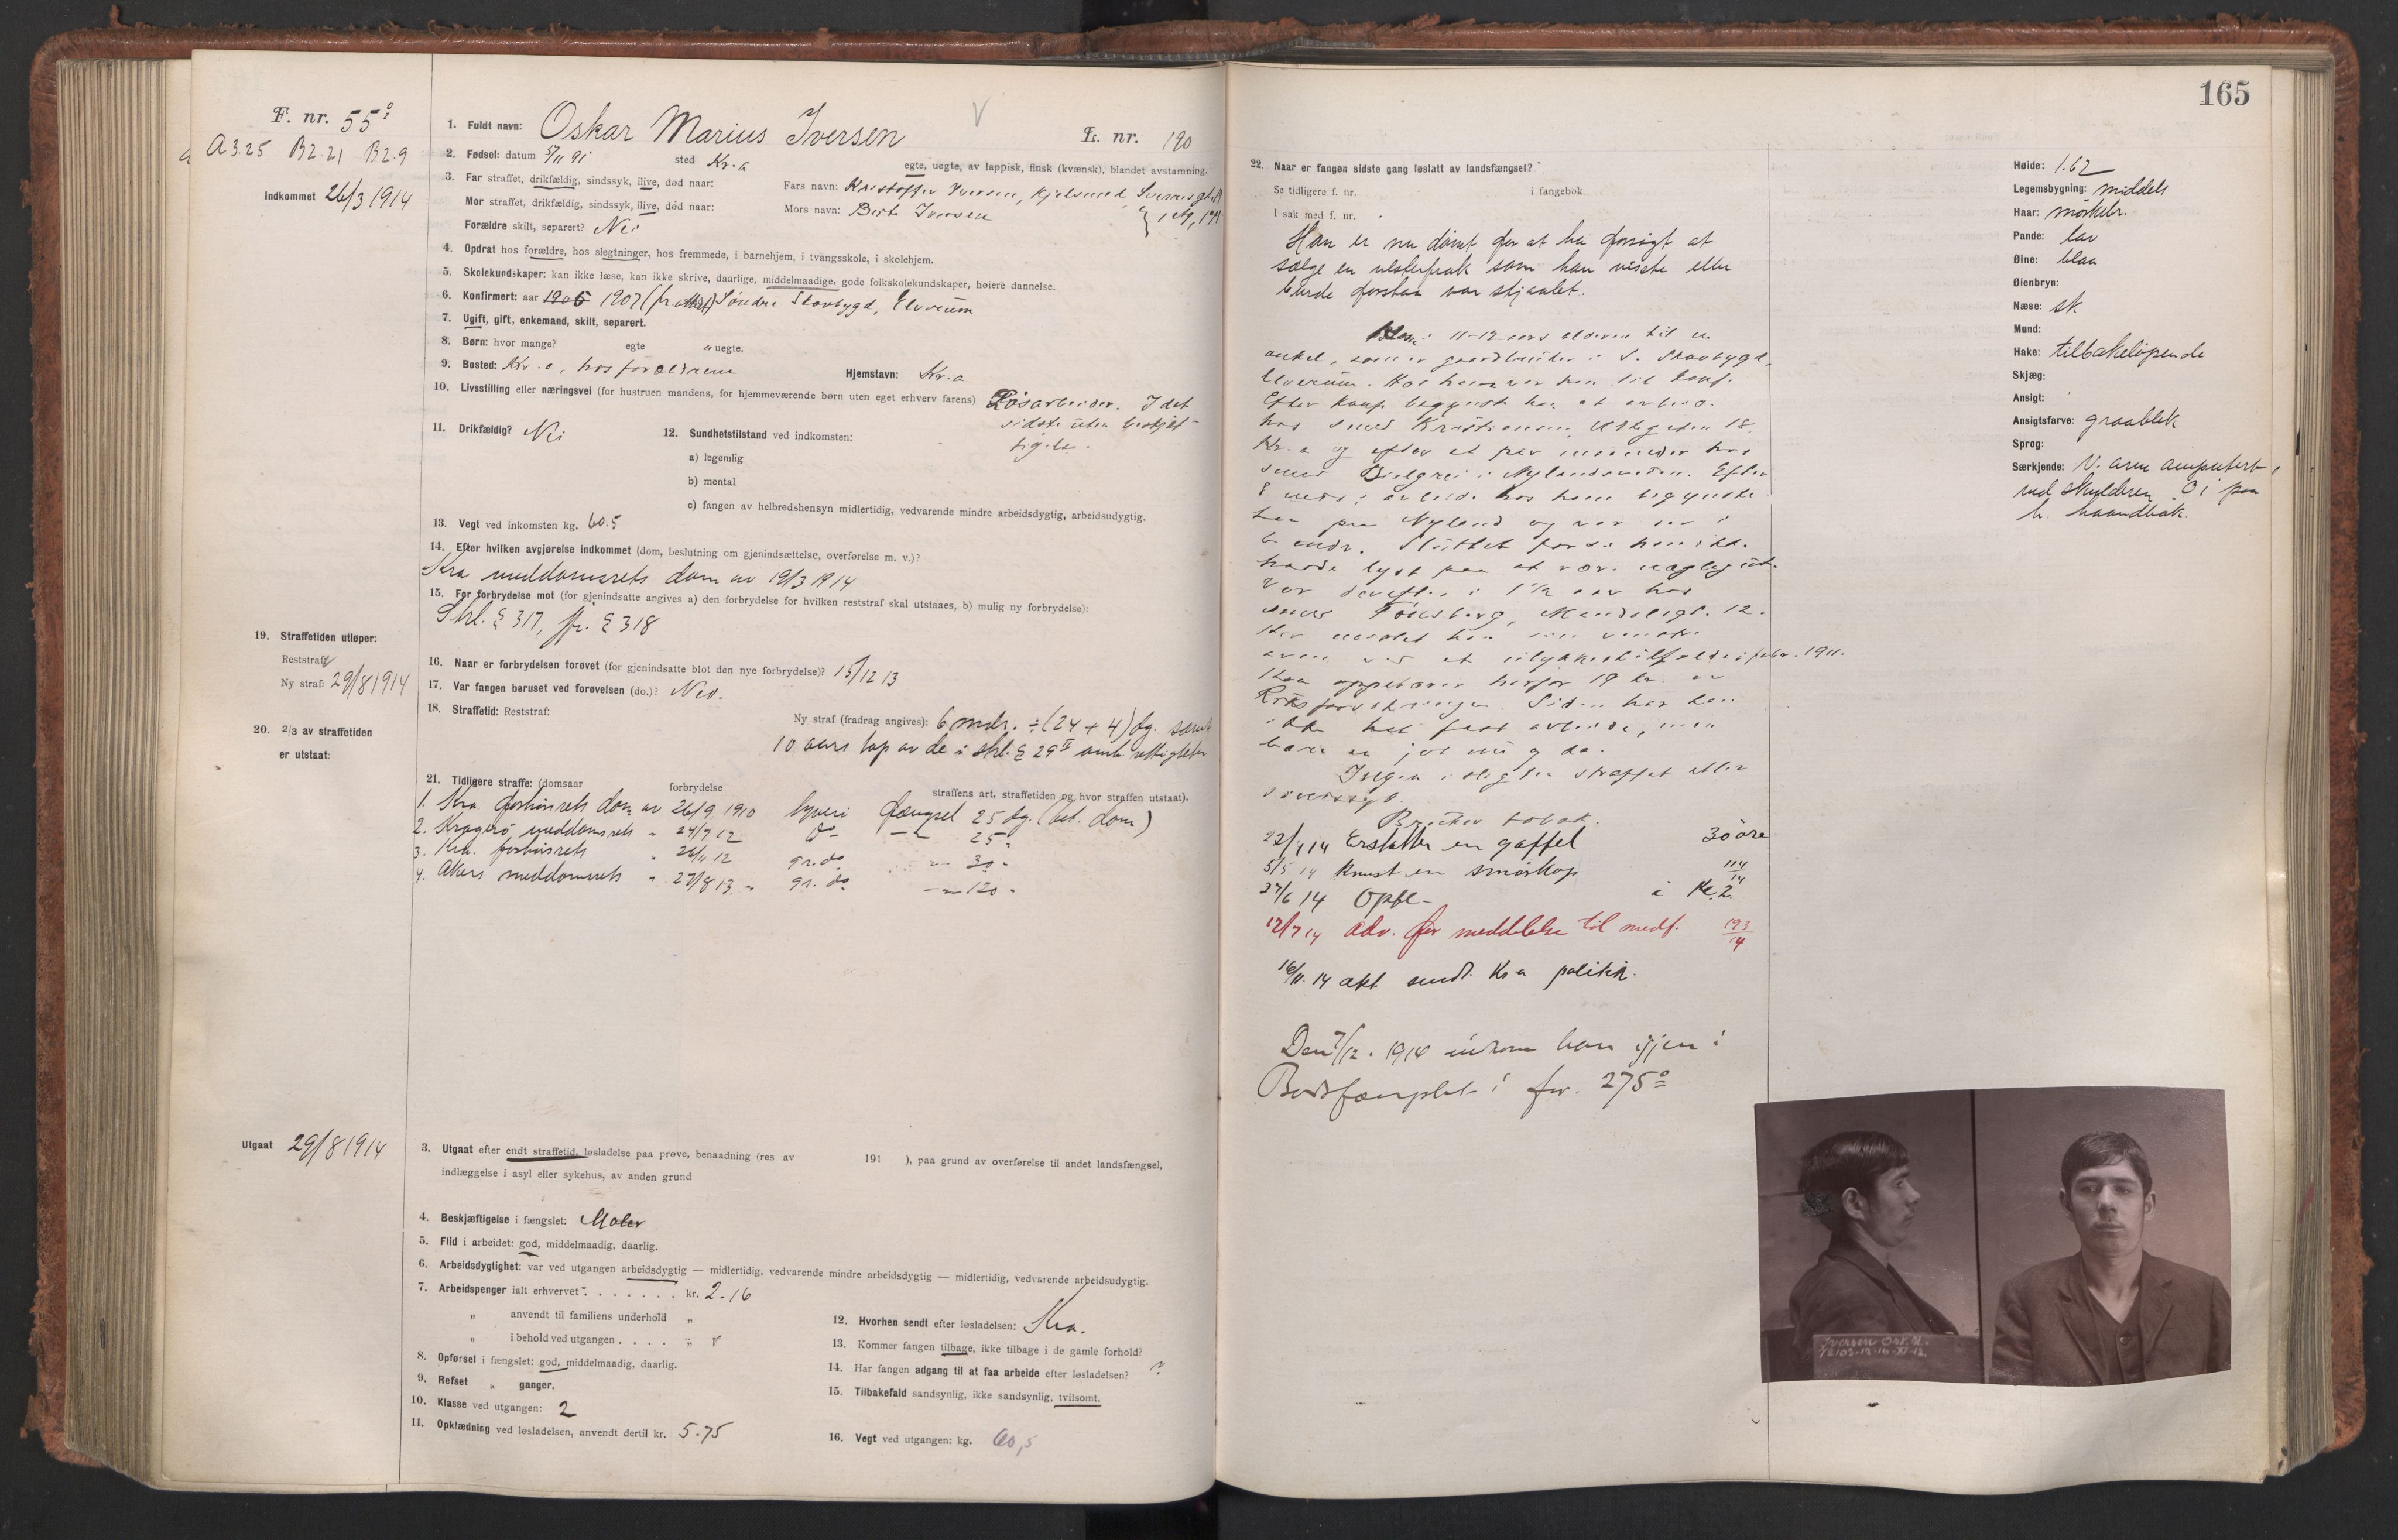 165
F. nr. 55º
A 3.25 B2.21 B2.9
Indkommet 26/3 1914
1. Fuldt navn: Oskar Marius Iversen
L. nr. 190
2. Fødsel: datum 5/11 91 sted Kr.a
egte, uegte, av lappisk, finsk (kvænsk), blandet avstamning.
3. Far straffet, drikfældig, sindssyk, ilive, død naar:
Fars navn: Kristoffer Iversen, Kjelsmed,
Mor straffet, drikfældig, sindssyk, ilive, død naar:
Mors navn: Iversen
Forældre skilt, separert? Nei
4. Opdrat hos forældre, hos slegtninger, hos fremmede, i barnehjem, i tvangsskole, i skolehjem.
5. Skolekundskaper: kan ikke læse, kan ikke skrive, daarlige, middelmaadige, gode folkskolekundskaper, høiere dannelse.
6. Konfirmert: aar 1906 1907 Søndre Skovbygd, Elverum
7. Ugift, gift, enkemand, skilt, separert.
8. Børn: hvor mange? egte " uegte.
9. Bosted: Kr.a, hos forældrene Hjemstavn: Kr.a
10. Livsstilling eller næringsvei (for hustruen mandens, for hjemmeværende børn uten eget erhverv farens) Løsarbeider. I det
sidste uten beskjæf-
tigelse.
11. Drikfældig? Nei
12. Sundhetstilstand ved indkomsten:
a) legemlig
b) mental
c) fangen av helbredshensyn midlertidig, vedvarende mindre arbeidsdygtig, arbeidsudygtig.
13. Vegt ved inkomsten kg. 60.5
14. Efter hvilken avgjørelse indkommet (dom, beslutning om gjenindsættelse, overførelse m. v.)?
Kra meddomsrets dom av 19/3 1914
15. For forbrydelse mot (for gjenindsatte angives a) den forbrydelse for hvilken reststraf skal utstaaes, b) mulig ny forbrydelse):
Strl. § 317, jfr. § 318
16. Naar er forbrydelsen forøvet (for gjenindsatte blot den nye forbrydelse)? 15/12 13
17. Var fangen beruset ved forøvelsen (do.)? Nei.
18. Straffetid: Reststraf:
Ny straf (fradrag angives): 6 mdr. ÷ (24 + 4) dg. samt
10 aars tap av de i strl. § 29 II omh. rettigheter
19. Straffetiden utløper:
Reststraf:
Ny straf: 29/8 1914
20. 2/3 av straffetiden
er utstaat:
21. Tidligere straffe: (domsaar forbrydelse straffens art, straffetiden og hvor straffen utstaat).
1. Kra. forhørsrets dom av 26/9 1910 tyveri fængsel 25 dg. (bet. dom)
2. Kragerö meddomsrets " 24/7 12 do " 25 "
3. Kra. forhørsrets " 26/11 12 gr. do " 30 "
4. Akers meddomsrets " 27/8 13 " gr. do " 120 "
Utgaat 29/8 1914
3. Utgaat efter endt straffetid, løsladelse paa prøve, benaadning (res av 191 ), paa grund av overførelse til andet landsfængsel,
indlæggelse i asyl eller sykehus, av anden grund
4. Beskjæftigelse i fængslet: Maler
5. Flid i arbeidet: god, middelmaadig, daarlig.
6. Arbeidsdygtighet: var ved utgangen arbeidsdygtig — midlertidig, vedvarende mindre arbeidsdygtig — midlertidig, vedvarende arbeidsudygtig.
7. Arbeidspenger ialt erhvervet . . . . . . . kr. 2.16
" anvendt til familiens underhold "
" i behold ved utgangen . . . . "
8. Opførsel i fængslet: god, middelmaadig, daarlig.
9. Refset " ganger.
10. Klasse ved utgangen: 2
11. Opklædning ved løsladelsen, anvendt dertil kr. 5.75
12. Hvorhen sendt efter løsladelsen: Kra.
13. Kommer fangen tilbage, ikke tilbage i de gamle forhold?
14. Har fangen adgang til at faa arbeide efter løsladelsen? ?
15. Tilbakefald sandsynlig, ikke sandsynlig, tvilsomt.
16. Vegt ved utgangen: kg. 60,5
22. Naar er fangen sidste gang løslatt av landsfængsel?
Se tidligere f. nr. i fangebok
I sak med f. nr.
Han er nu dømt for at ha forsøgt at
sælge en ulsterfrak som han visste eller
burde forstaa var stjaalet.
Kom i 11-12 aars alderen til en
onkel, som er gaardbruker i S. Skovbygd,
Elverum. Hos ham var han til konf.
Efter konf. begynte han at arbeide
hos smed Kristiansen, 18
Kr.a og efter et par maaneder hos
smed i Nylandsveien. Efter
8 mdr.s arbeide hos ham begynte
han paa Nyland og var der i
6 mdr. Sluttet fordi han ikke
hadde lyst paa at være
Var derefter i 1 1/2 aar hos
smed Tønsberg, 12.
Her mistet han sin venstre
arm ved et ulykkestilfælde i febr. 1911.
Han oppebærer herfor 19 kr. av
Riksforsikringen. Siden har han
ikke hat fast arbeide, men
bare en jobb nu og da.
Ingen i slegten straffet eller
sindssyk.
Bruker tobak.
22/4 14 Erstatter en gaffel 30 øre
5/5 14 Knust en smørkop 114/14
27/6 14 Opfl. i Kl. 2
12/7 14 Adv. for meddelelse til medf. 193/14
16/11. 14 akt sendt Kr.a politik.
Den 7/12. 1914 indkom han igjen i
Botsfængslet i fnr. 275º
Høide: 1.62
Legemsbygning: middels
Haar: mørkebr.
Pande: lav
Øine: blaa
Øienbryn:
Næse: sk.
Mund:
Hake: tilbakeløpende
Skjæg:
Ansigt:
Ansigtsfarve: graablek
Sprog:
Særkjende: V. arm amputert
ved skulderen. paa
h. haandbak.
Iversen Osk. M.